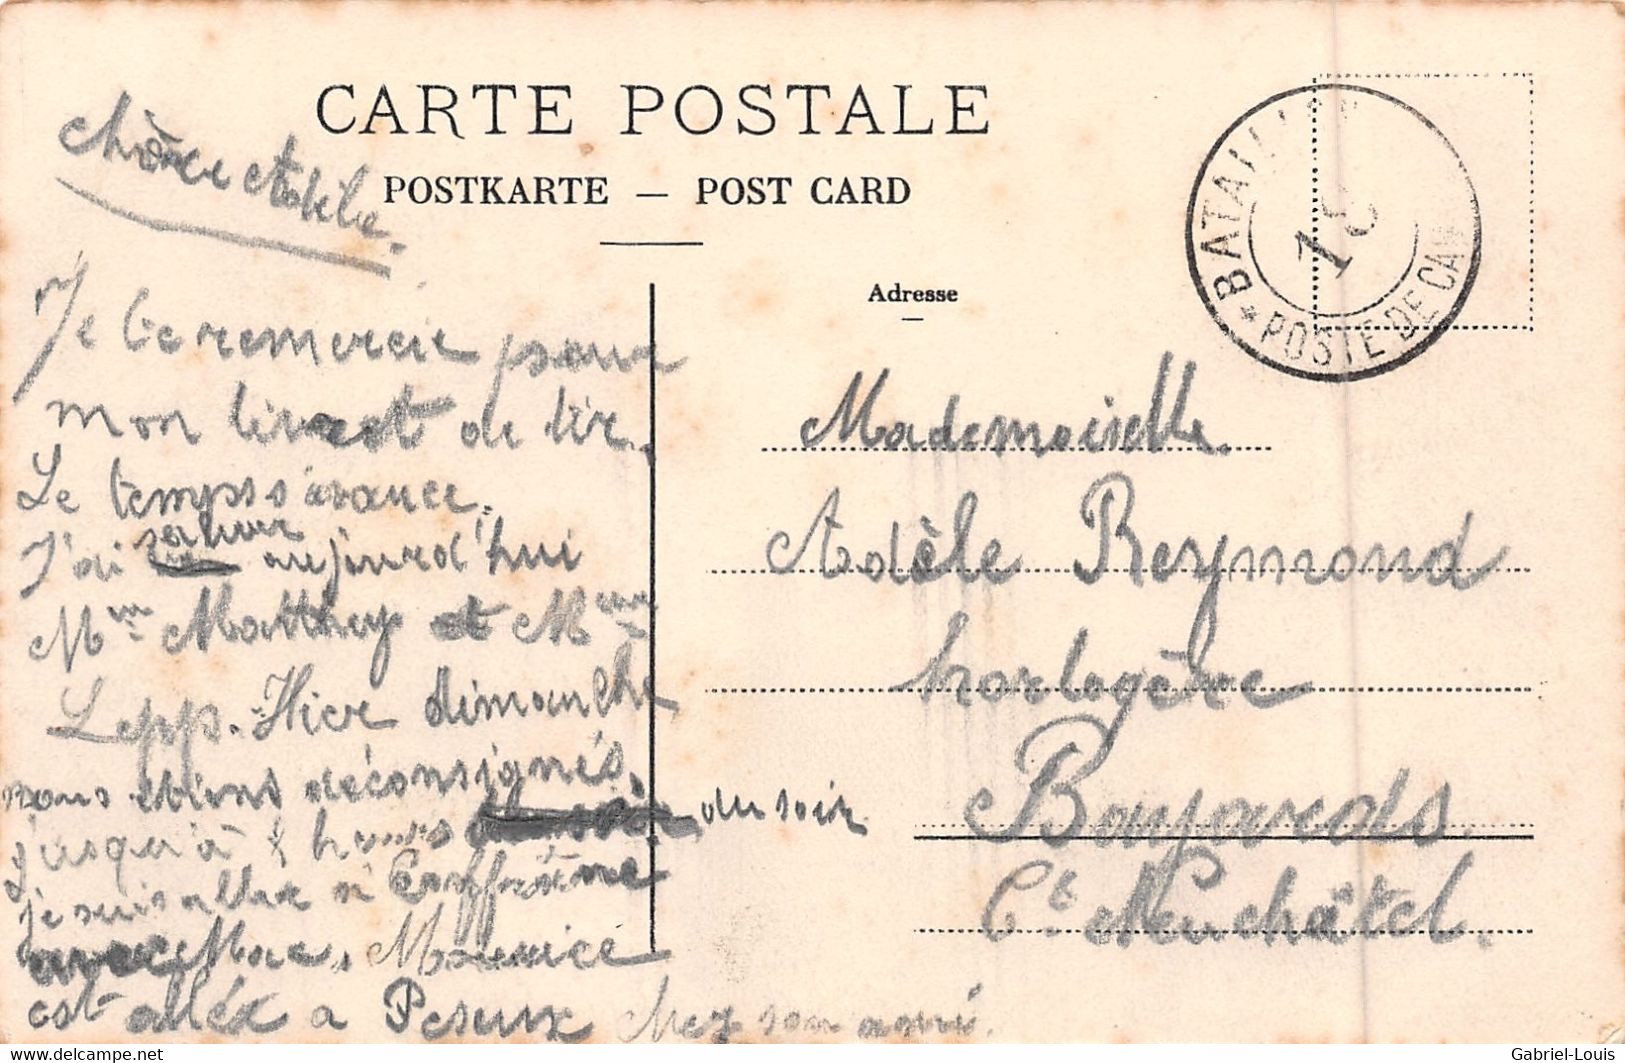 CARTE POSTALE
POSTKARTE — POST CARD
Adresse
BATAILLON
18
* POSTE DE CAM
chère Adèle.
Je te remercie pour
mon livret de tir.
Le temps s'avance.
J'ai aujourd'hui
Mme Matthey et Mme
Lepp. Hier dimanche
nous étions déconsignés
jusqu'à heures du soir
je suis allex à
avec Mac, Maurice
est alléx a Peseux chez son ami.
Mademoiselle.
Adèle Reymond
horlogère
Bayards.
Ct Neuchâtel.
http://www.delcampe.net
Gabriel-Louis